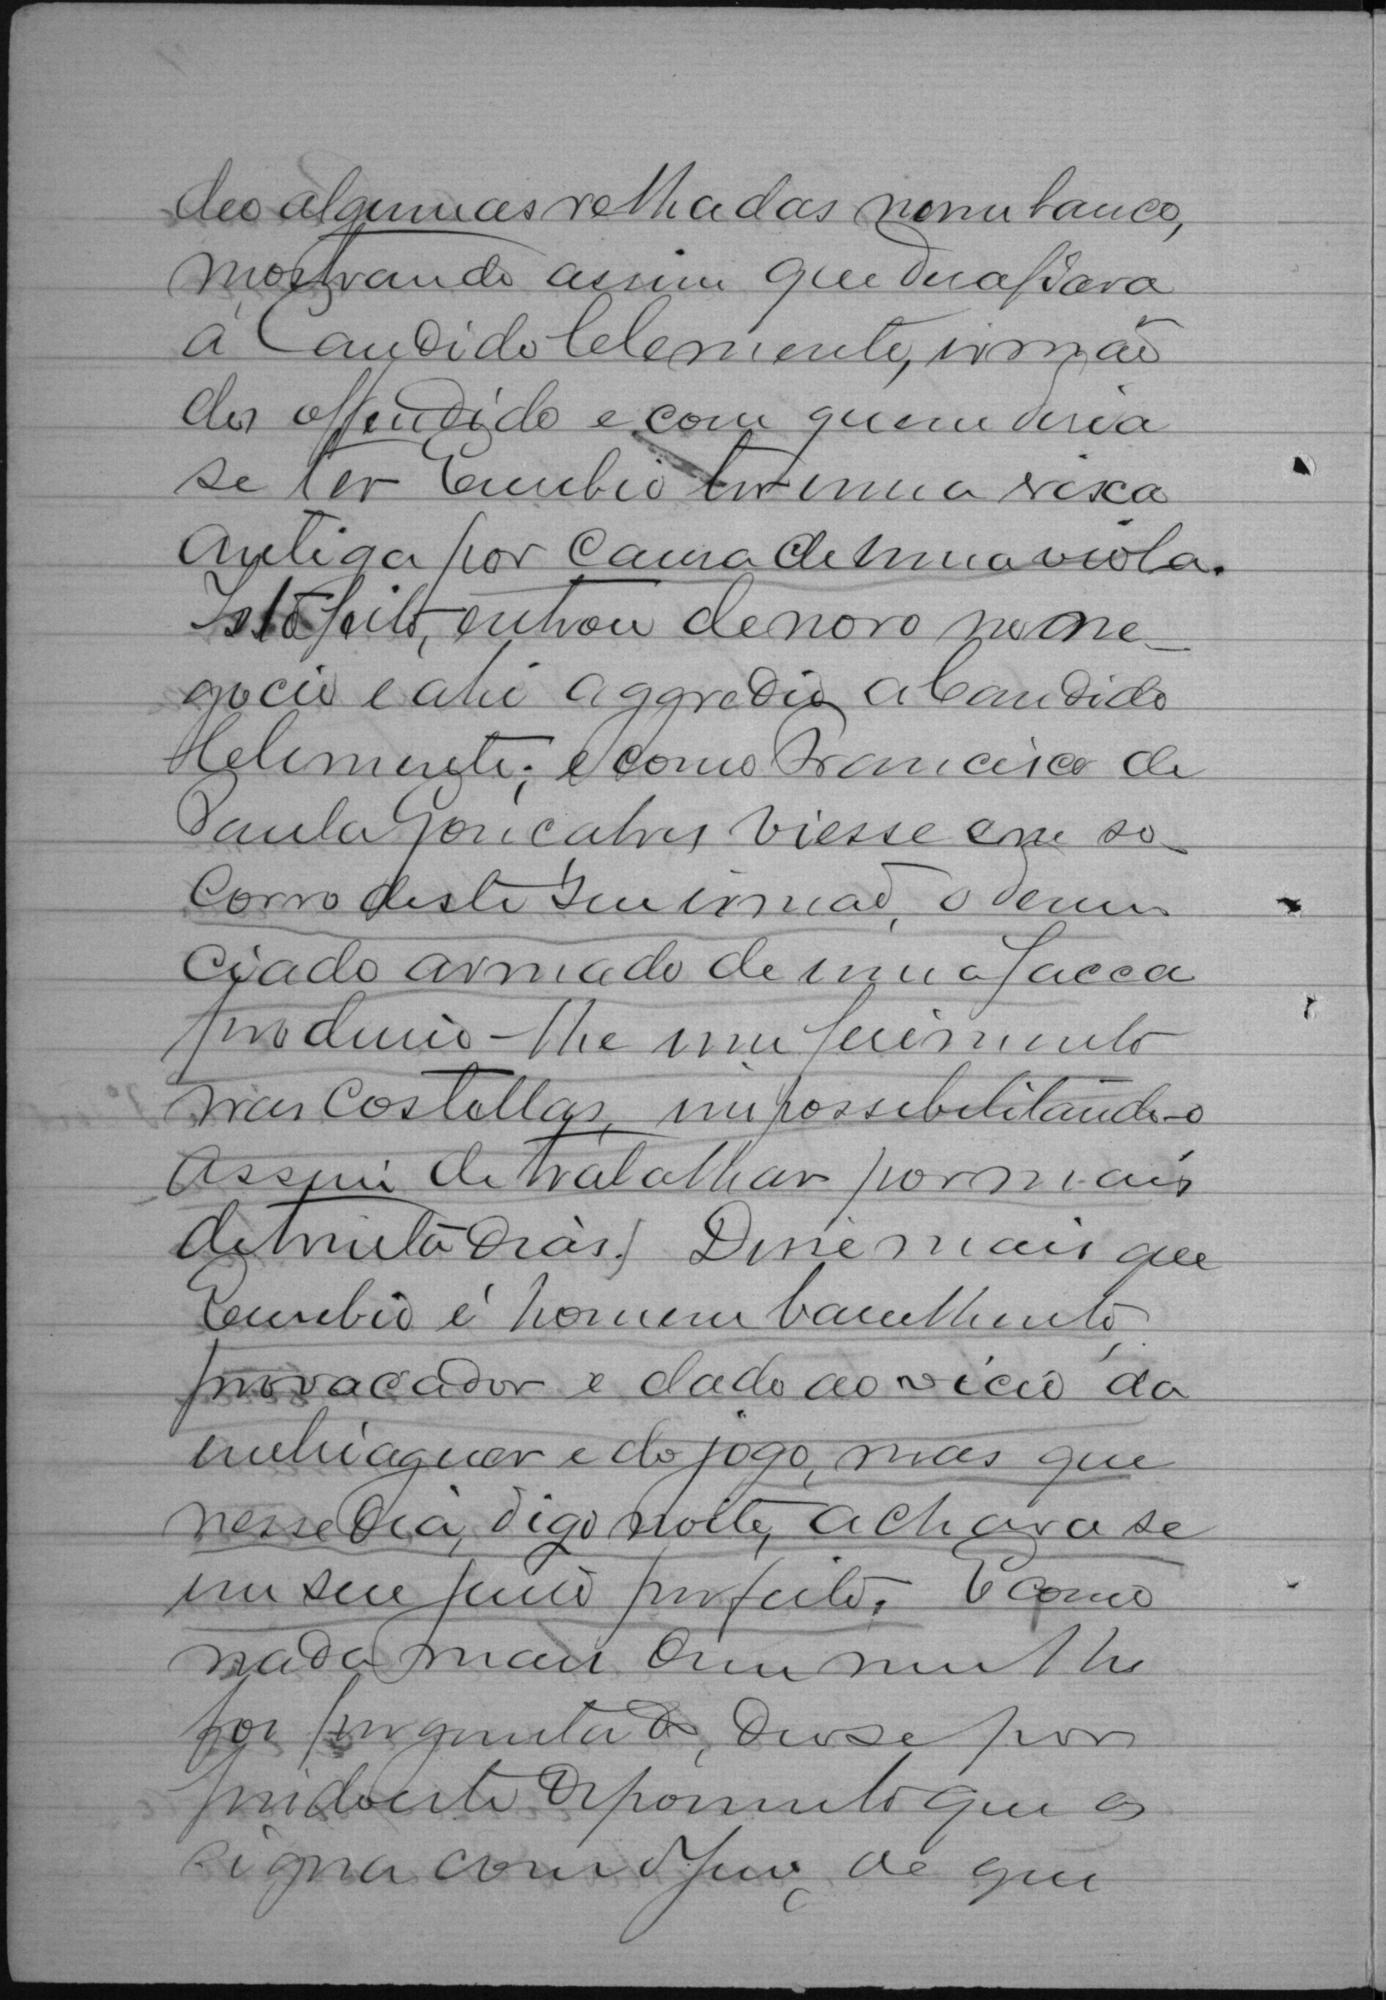 deo algumas relhadas n'um banco,
mostrando assim que desafiava
á Candido Clemente, irmão
do offendido e com quem disia
se ter Eusebio ter uma rixa
antiga por causa de uma viola.
Isto feito, entrou de novo no ne-
gocio e ahi aggredio a Candido
Clemente; e como Francisco de
Paula Gonçalves viesse em so-
corro deste seu irmão, o denun
ciado armado de uma facca
produsio-lhe um ferimento
nas costellas, impossibilitando-o
assim de trabalhar por mais
de trinta dias. Disse mais que
Eusebio é homem barulhento,
provocador e dado ao vicio da
embriaguez e do jogo, mas que
nesse dia, digo noite, achava se
em seu juiso perfeito. E como
nada mais disse nem lhe
foi perguntado, deo se por
findo este depoimento que as
signa com o Juiz de que